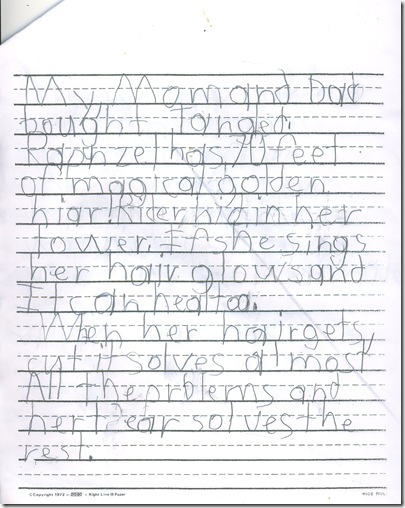 My Mom and Dad
bought Tangled.
Rapnzel has 70 feet
of magical golden
hiar. Rider hid in her
tower. If she sings
her hair glows and
It can heal to.
When her hair gets
cut it solves almost
All the orblems and
her tear solves the
rest.
©Copyright 1972 -